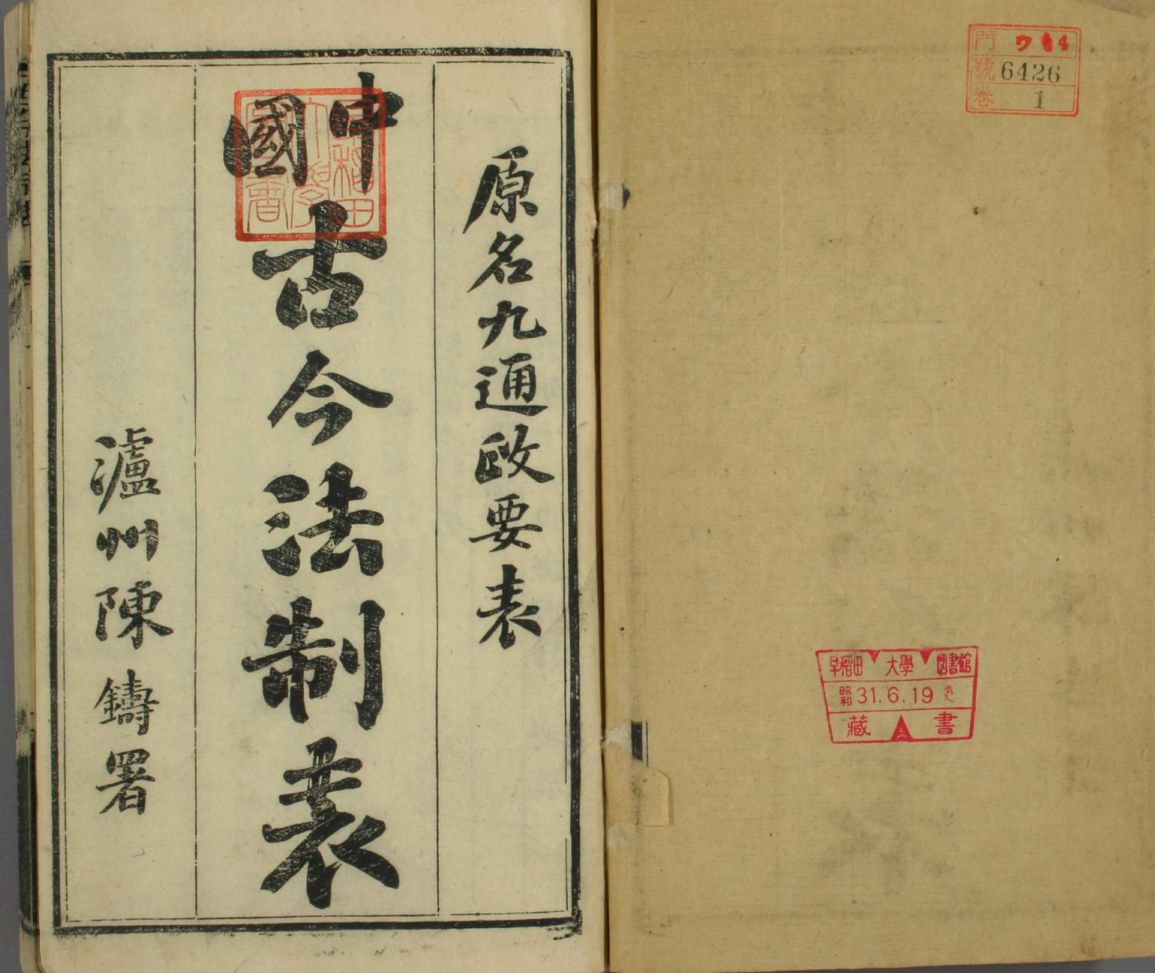 原名九通政要表
中國古今法制表
瀘州陳鑄署
門 ワ 4
號 6426
卷 1
早稲田大學圖書館
昭和 31.6.19
藏書